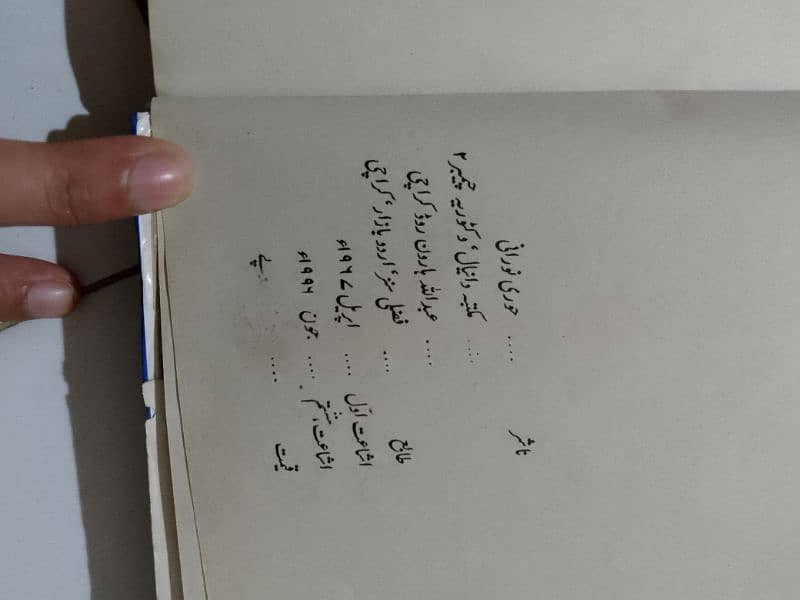 ناشر .... حوری نورانی
مکتبہ دانیال، وکٹوریہ چیمبر ۲
.... عبداللہ ہارون روڈ کراچی
طابع .... فضلی سنز، اردو بازار، کراچی
اشاعت اوّل .... اپریل ۱۹۶۷ء
اشاعت ہشتم .... جون ۱۹۹۶ء
قیمت ....